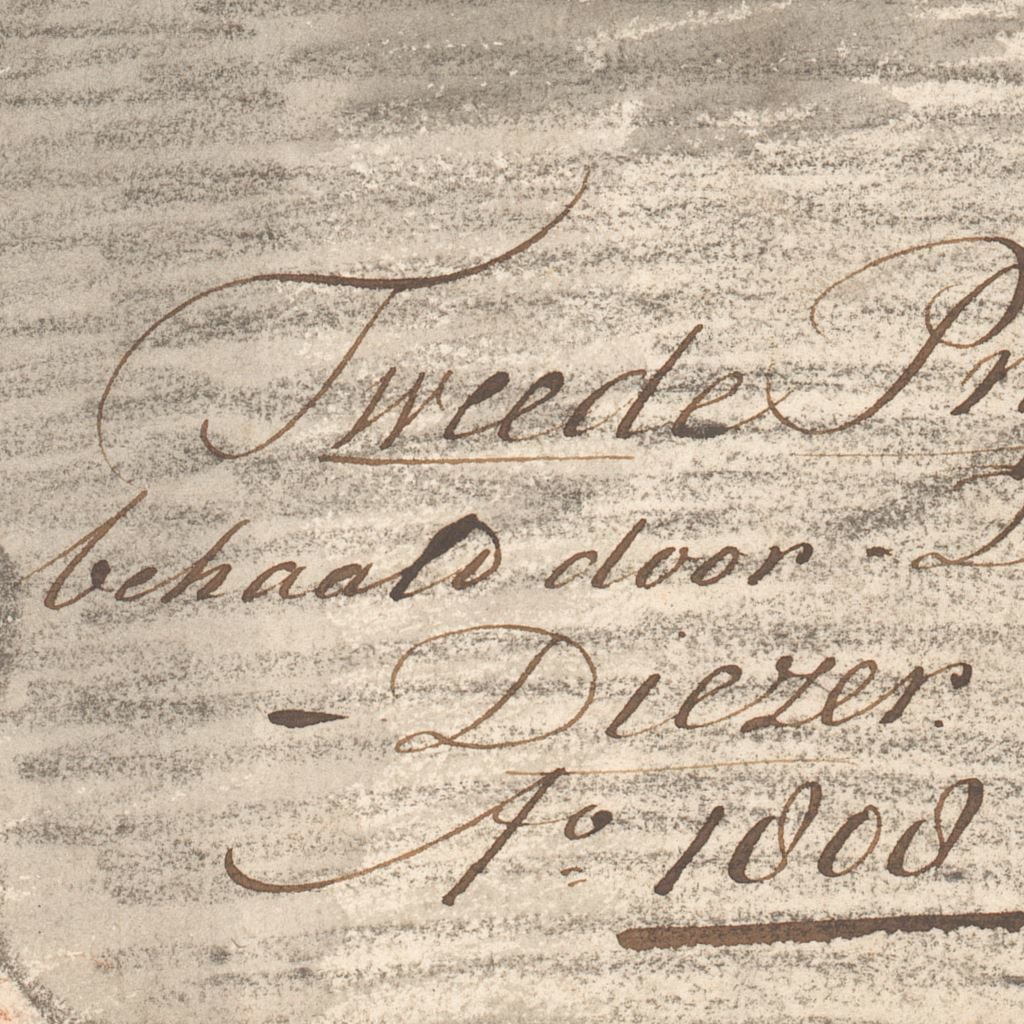 Tweede Pr
behaald door - D
- Diezer.
Ao 1808